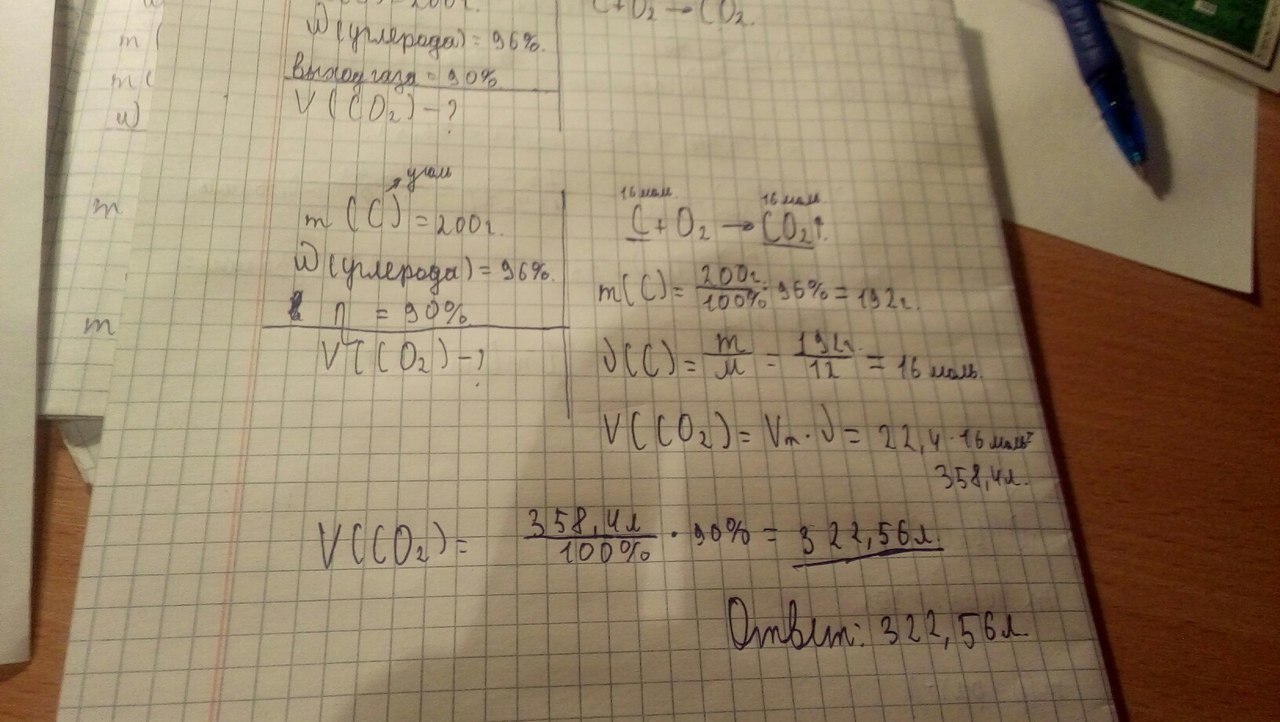 C+O₂→CO₂.
W(углерода)=96%.
выход газа=90%
V(CO₂)-?
m(
m(
w)
m
m
уголь
m(C)=200г.
W(углерода)=96%.
η=90%
V(CO₂)-?
16 моль 16 моль
C+O₂→CO₂↑.
m(C)=200г./100%·96%=192г.
ν(C)=m/M=192г./12=16 моль.
V(CO₂)=Vm·ν=22,4·16моль=
358,4л.
V(CO₂)=358,4л/100%·90%=322,56л.
Ответ: 322,56л.